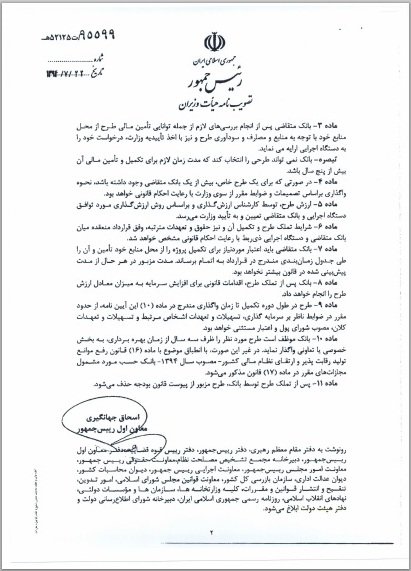 ۹۵۵۹۹/ت۵۲۱۲۵هـ
شماره
تاریخ ۱۳۹۴/۷/۲۰
جمهوری اسلامی ایران
رئیس جمهور
تصویب نامه هیأت وزیران
ماده ۳- بانک متقاضی پس از انجام بررسی‌های لازم از جمله توانایی تأمین مالی طرح از محل
منابع خود با توجه به منابع و مصارف و سودآوری طرح و نیز با اخذ تأییدیه وزارت، درخواست خود را
به دستگاه اجرایی ارایه می نماید.
تبصره- بانک نمی تواند طرحی را انتخاب کند که مدت زمان لازم برای تکمیل و تأمین مالی آن
بیش از پنج سال باشد.
ماده ۴- در صورتی که برای یک طرح خاص، بیش از یک بانک متقاضی وجود داشته باشد، نحوه
واگذاری براساس تصمیمات و ضوابط مقرر از سوی وزارت با رعایت احکام قانونی خواهد بود.
ماده ۵- ارزش طرح، توسط کارشناس ارزش‌گذاری و براساس روش ارزش‌گذاری مورد توافق
دستگاه اجرایی و بانک متقاضی تعیین و به تأیید وزارت می‌رسد.
ماده ۶- شرایط تملک طرح و تکمیل آن و نیز حقوق و تعهدات مترتبه، وفق قرارداد منعقده میان
بانک متقاضی و دستگاه اجرایی ذی‌ربط با رعایت احکام قانونی مشخص خواهد شد.
ماده ۷- بانک متقاضی باید اعتبار موردنیاز برای تکمیل پروژه را از محل منابع خود تأمین و آن را
طی جدول زمان‌بندی مندرج در قرارداد به اتمام برساند. مدت مزبور در هر حال از مدت
پیش‌بینی شده در قانون بیشتر نخواهد بود.
ماده ۸- بانک پس از تملک طرح، اقدامات قانونی برای افزایش سرمایه به میزان معادل ارزش
طرح را انجام خواهد داد.
ماده ۹- طرح در طول دوره تکمیل تا زمان واگذاری مندرج در ماده (۱۰) این آیین نامه، از حدود
مقرر در ضوابط ناظر بر سرمایه گذاری، تسهیلات و تعهدات اشخاص مرتبط و تسهیلات و تعهدات
کلان، مصوب شورای پول و اعتبار مستثنی خواهد بود.
ماده ۱۰- بانک موظف است طرح مورد نظر را ظرف سه سال از زمان بهره برداری، به بخش
خصوصی یا تعاونی واگذار نماید، در غیر این صورت، با انطباق موضوع با ماده (۱۶) قانون رفع موانع
تولید رقابت پذیر و ارتقای نظام مالی کشور- مصوب سال ۱۳۹۴- بانک حسب مورد مشمول
مجازات‌های مقرر در ماده (۱۷) قانون مذکور می‌شود.
ماده ۱۱- پس از تملک طرح توسط بانک، طرح مزبور از پیوست قانون بودجه حذف می‌شود.
اسحاق جهانگیری
معاون اول رییس‌جمهور
رونوشت به دفتر مقام معظم رهبری، دفتر رییس‌جمهور، دفتر رییس قوه قضاییه، دفتر معاون اول
رییس‌جمهور، دبیرخانه مجمع تشخیص مصلحت نظام، معاونت حقوقی رییس جمهور،
معاونت امور مجلس رییس‌جمهور، معاونت اجرایی رییس جمهور، دیوان محاسبات کشور،
دیوان عدالت اداری، سازمان بازرسی کل کشور، معاونت قوانین مجلس شورای اسلامی، امور تدوین،
تنقیح و انتشار قوانین و مقررات، کلیه وزارتخانه ها، سازمان ها و مؤسسات دولتی،
نهادهای انقلاب اسلامی، روزنامه رسمی جمهوری اسلامی ایران، دبیرخانه شورای اطلاع‌رسانی دولت و
دفتر هیئت دولت ابلاغ می‌شود.
۲